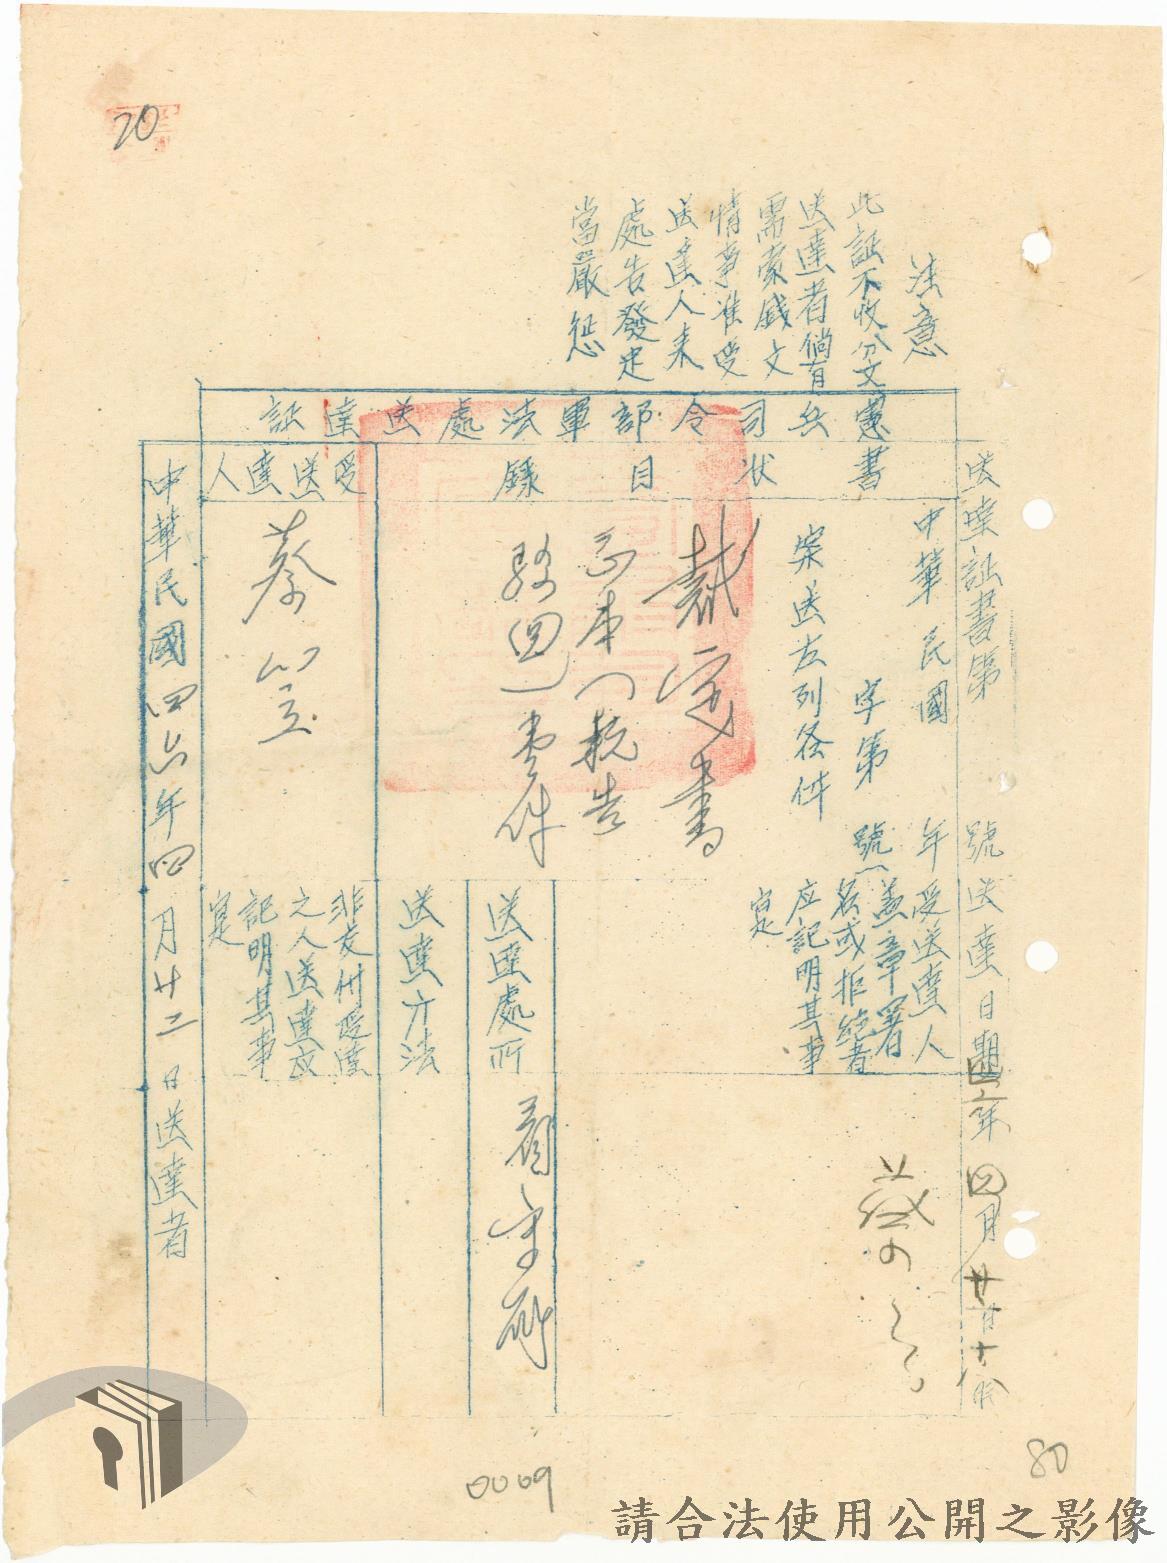 20
注意
此証不收分文
送達者倘有
需索錢文
情事准受
送達人来
處告發定
當嚴懲
憲兵司令部軍法處送達証
送達証書第 號 送達日期 四六年 四月 廿 日 十 時
書狀目錄
受送達人
中華民國 年
字第 號
案送左列各件
裁定書
正本
一件
蔡
受送達人
蓋章署
名或拒絕者
应記明其事
寔
送達處所
看守所
送達方法
非交付受達
之人送達应
記明其事
寔
中華民國四六年四月廿二日送達者
0009
80
請合法使用公開之影像